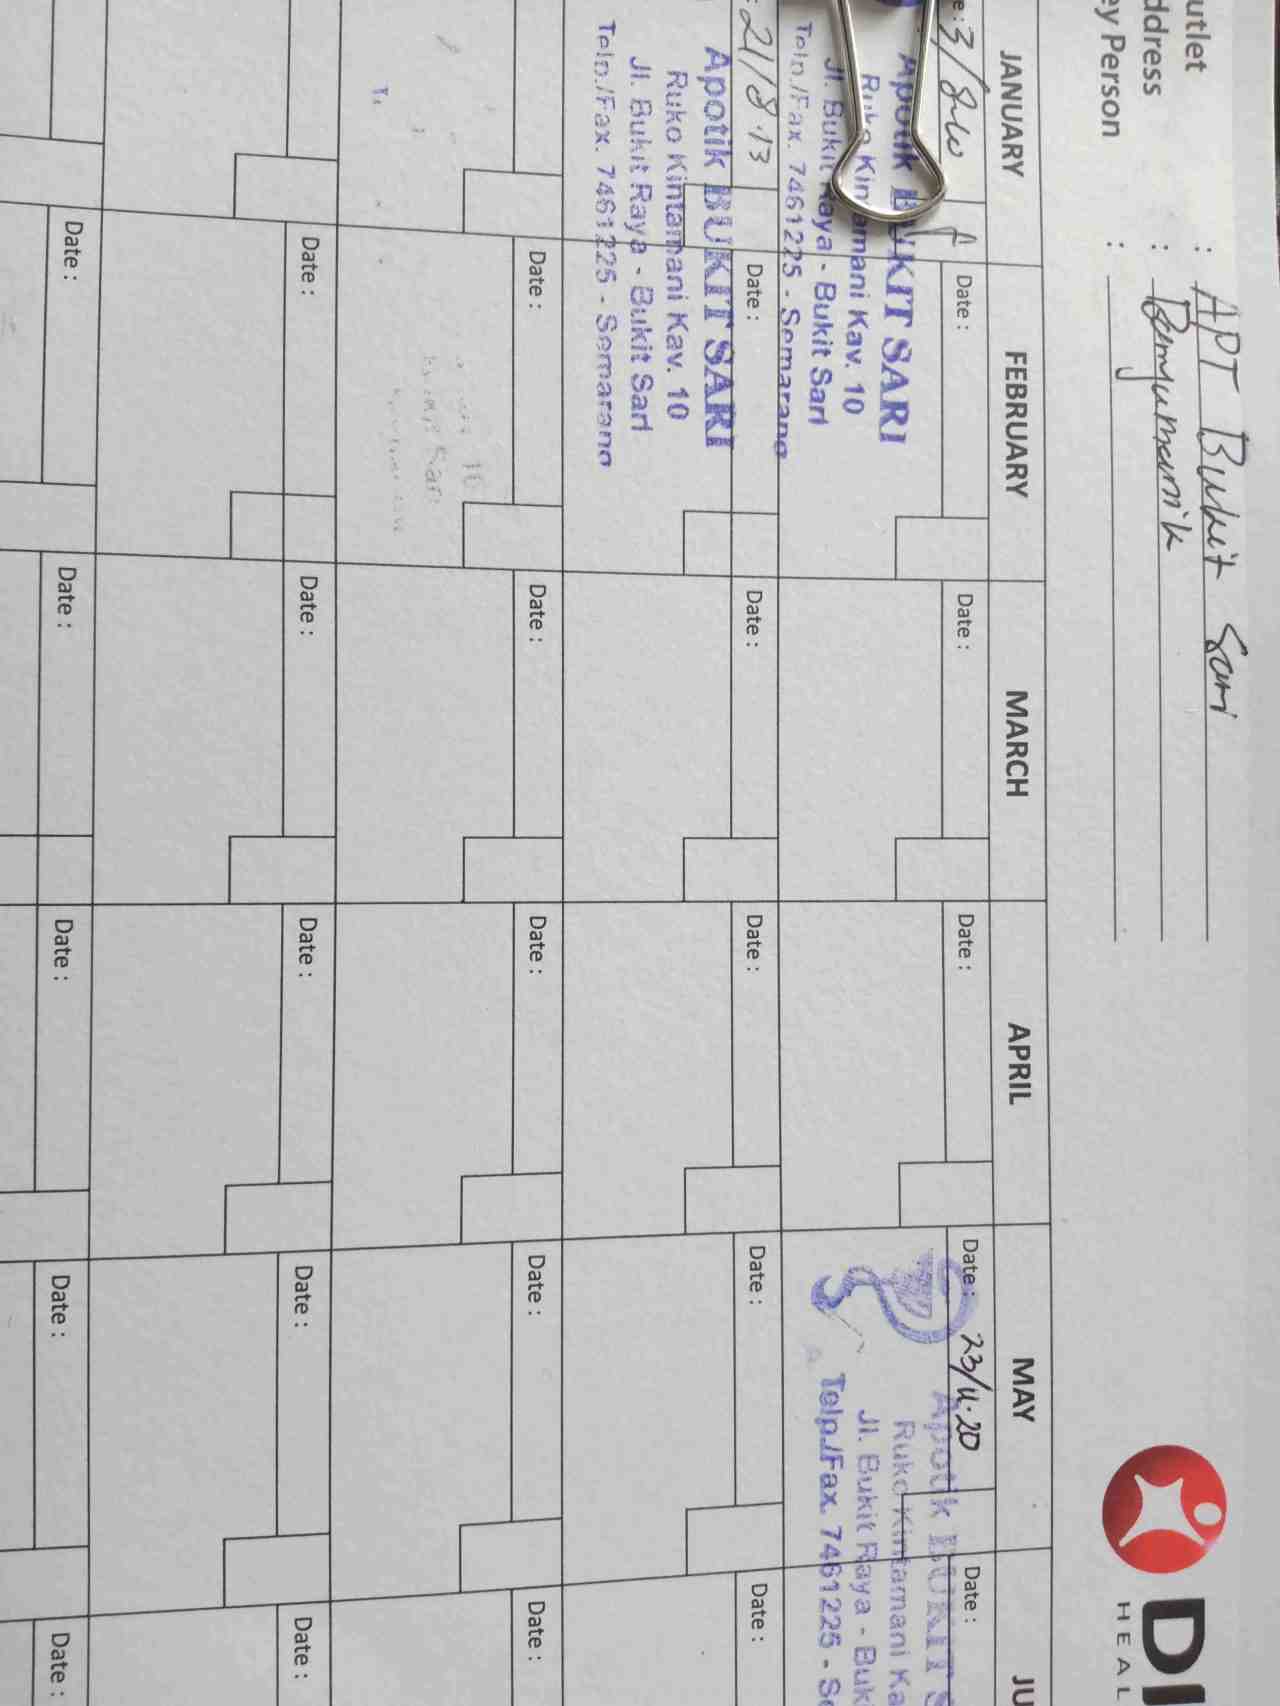 utlet : APT Bukit Sari
ddress : Banyumanik
ey Person :
DI
HEAL
JANUARY FEBRUARY MARCH APRIL MAY JU
e: 3/ Date : Date : Date : Date : 23/4.20 Date :
Apotik BUKIT SARI
Ruko Kintamani Kav. 10
Jl. Bukit Raya - Bukit Sari
Telp./Fax. 7461225 - Semarang
Apotik BUKIT S
Ruko Kintamani Ka
Jl. Bukit Raya - Buk
Telp./Fax. 7461225 - Se
: 21/8.13 Date : Date : Date : Date : Date :
Apotik BUKIT SARI
Ruko Kintamani Kav. 10
Jl. Bukit Raya - Bukit Sari
Telp./Fax. 7461225 - Semarang
Date : Date : Date : Date : Date :
10
Date : Date : Date : Date : Date :
Date : Date : Date : Date : Date :